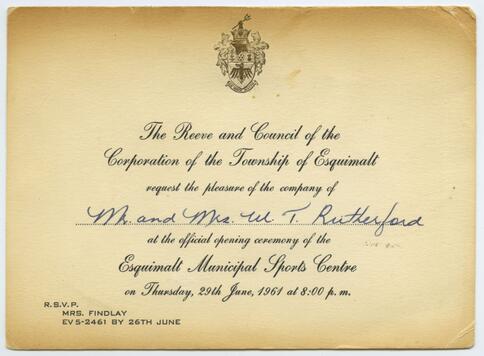 The Reeve and Council of the
Corporation of the Township of Esquimalt
request the pleasure of the company of
Mr. and Mrs. W. T. Rutherford
at the official opening ceremony of the
Esquimalt Municipal Sports Centre
on Thursday, 29th June, 1961 at 8:00 p.m.
R.S.V.P.
MRS. FINDLAY
EV 5-2461 BY 26TH JUNE